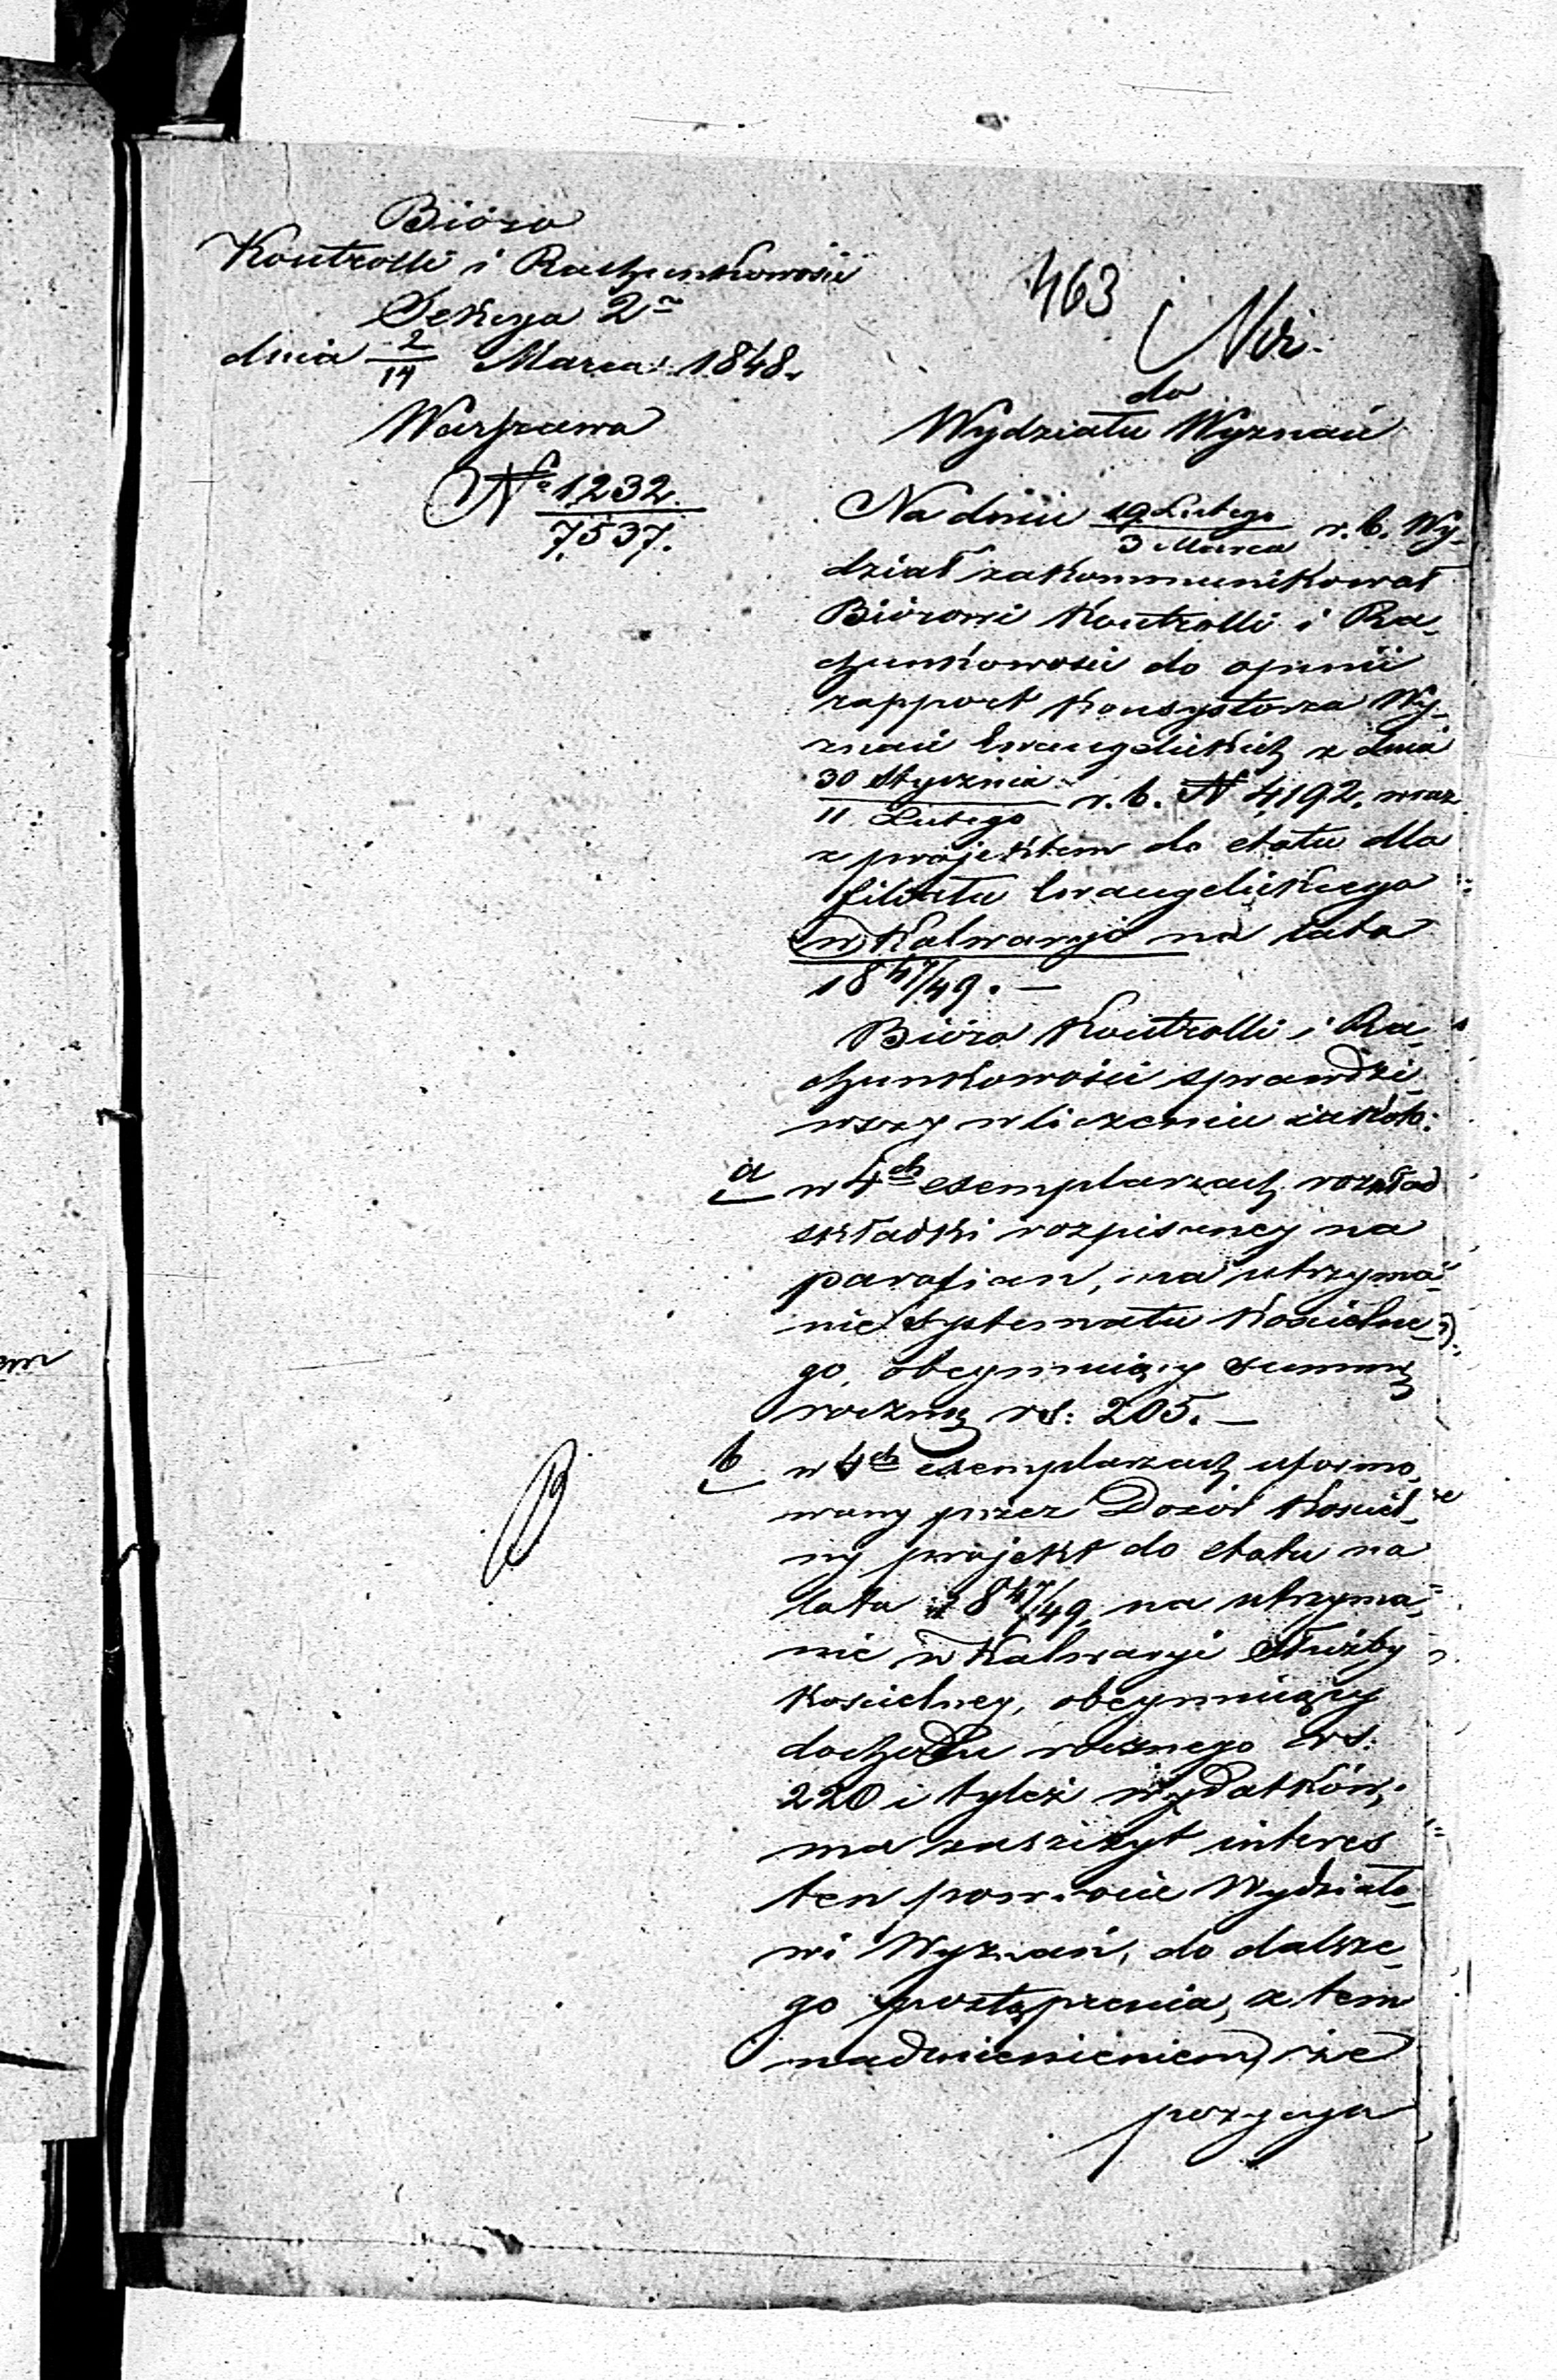 Bióro
Kontrolli i Rachunkowości
Sekcya 2a
dnia 2/14 Marca 1848.
Warszawa
No 1232.
7,537.
463
do
Wydziału Wyznań
Na dniu 19 Lutego / 3 Marca r. b. Wy-
dział zakommunikował
Biórowi Kontrolli i Ra-
chunkowości do opinii
rapport Konsystorza Wy-
znań Ewangelickich z dnia
30 Stycznia / 11 Lutego r. b. N 4,192. wraz
z projektem do etatu dla
filiału Ewangelickiego
w Kalwaryi na lata
1847/49. —
Bióro Kontrolli i Ra-
chunkowości sprawdzi-
wszy w liczeniu
a w 4ch exemplarzach rozkład
składki rozpisaney na
parafian, na utrzyma-
nie Systematu Kościelne-
go, obeymuiący summę
roczną rs: 205. —
b w 4ch exemplarzach uformo-
wany przez Dozór Kościel-
ny projekt do etatu na
lata 1847/49, na utrzyma-
nie w Kalwaryi Służby
Kościelney, obeymuiący
dochodu rocznego rs:
220 i tyleż wydatków;
ma zaszczyt interes
ten powrócić Wydziało-
wi Wyznań, do dalsze-
go postąpienia, z tem
nadmienieniem, że
pozycya